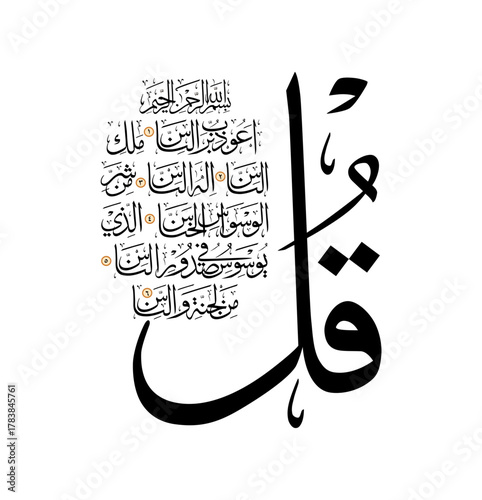 قل
بسم الله الرحمن الرحيم
اعوذ برب الناس ١ ملك
الناس ٢ اله الناس ٣ من شر
الوسواس الخناس ٤ الذي
يوسوس في صدور الناس ٥
من الجنة والناس ٦
Adobe Stock | #1783845761